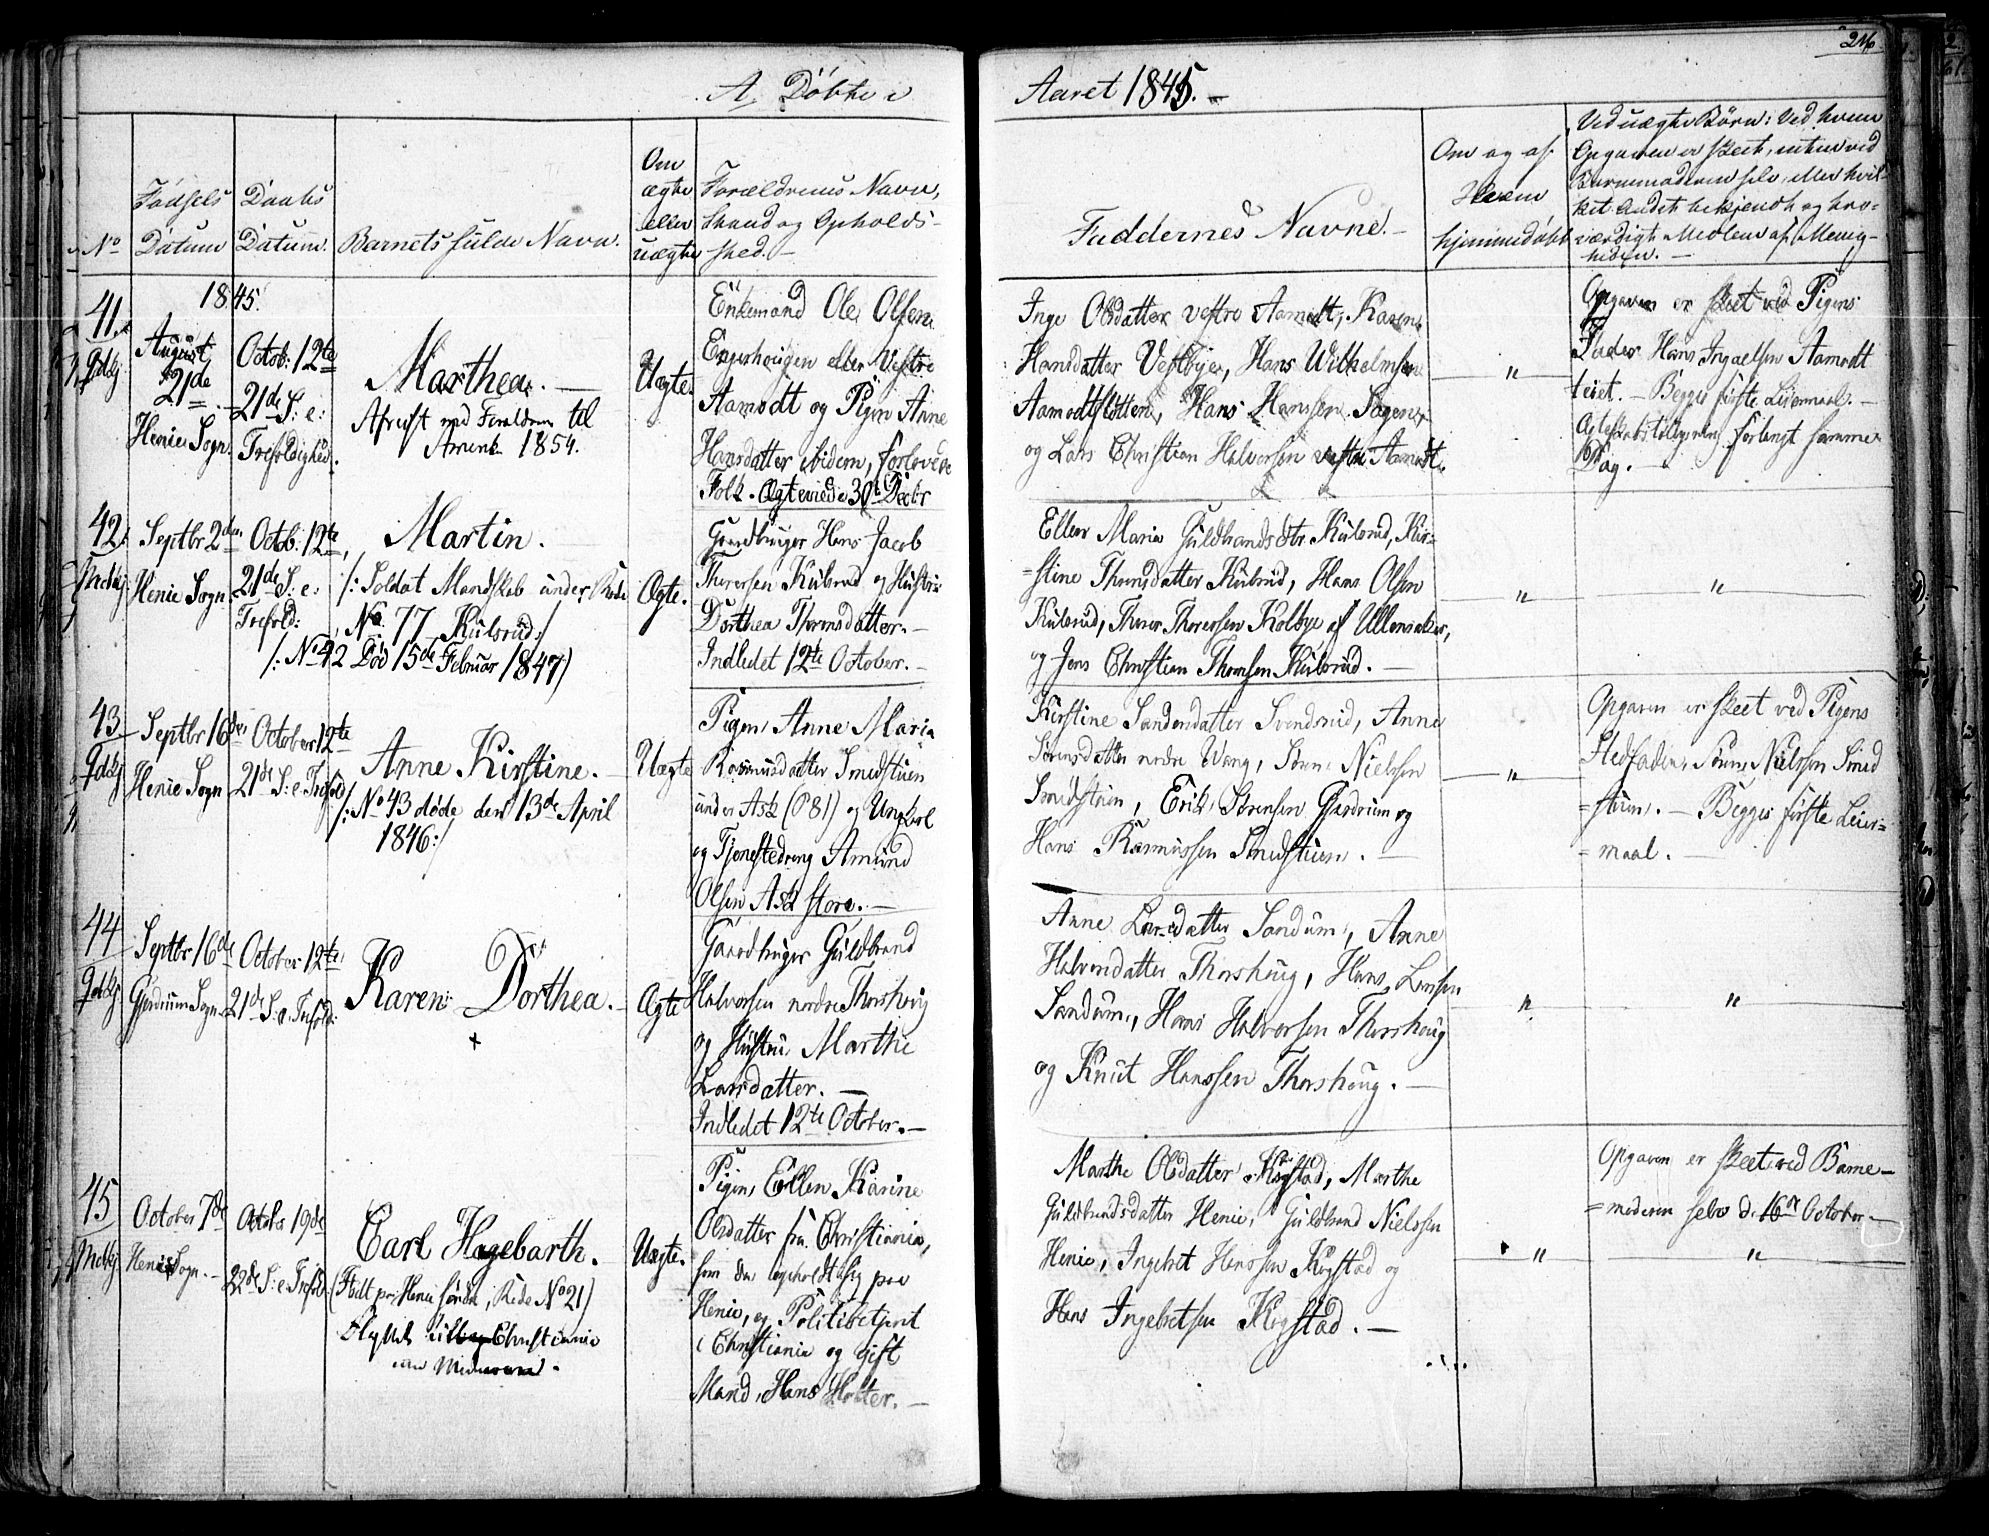 A, Döbte i Aaret 1845.
26
No
Födsels
Datum
Daabs
Datum.
Barnets fulde Navn.
Om
ægte
eller
uægte
Forældrenes Navn,
Stand og Opholds-
sted.
Faddernes Navne.
Om og af
Hvem
hjemmedöbt
Ved uægte Börn: Ved hvem
Opgaven er skeet, enten ved
Barnemoderen selv, eller hvil-
ket andet bekjendt og tro-
værdigt Medlem af Menig-
heden.
41.
Qvkj
1845.
August
21de
Henie Sogn.
Octob: 12te
21de S: e:
Trefoldighed.
Marthea.
Afreist med Forældrene til
Amerik 1854.
Uægte.
Enkemand Ole Olsen
Engerhougen eller Vestre
Aamodt og Pigen Anne
Hansdatter ibidem, forlovede
Folk. Ægteviede 30te Decbr
Inge Olsdatter vestre Aamodt, Karen
Hansdatter Vestbye, Hans Wilhelmsen
Aamodtslotten, Hans Hanssen Sagen,
og Lars Christian Halvorsen vestre Aamodt.
"
Opgaven er skeet ved Pigens
Fader Hans Ingvelsen Aamodt
eiet. - Begges förste Leiermaal. -
Ægteskabstillysning forlangt samme
Dag. -
42.
Mdkj
Septbr 2den
Henie Sogn.
Octob: 12te
21de S: e:
Trefold:
Martin.
/: Soldat Mandskab under Rode
No. 77 Kulsrud:/
/: No 42 Död 15de Februar 1847:/
Ægte.
Gaardbruger Hans Jacob
Thorersen Kulsrud og Hustru
Dorthea Thoresdatter. -
Indledet 12te October. -
Ellen Maria Guldbrandsdtr. Kulsrud, Kir-
=stine Thoresdatter Kulsrud, Hans Olsen
Kulsrud, Thorer Thorersen Kolbye af Ullensaker,
og Jens Christian Thoresen Kulsrud. -
"
"
43
Qvkj
Septbr 16de
Henie Sogn
October 12te
21de S: e: Trefold
Anne Kirstine. -
/: No 43 döde den 13de April
1846:/
Uægte
Pigen Anne Maria
Rasmusdatter Smedstuen
under Ask (081) og Ungkarl
og Tjenestedreng Amund
Olsen Ask store. -
Kirstine Sandersdatter Svendsrud, Anne
Sörensdatter nedre Wang, Sören Nielssen
Smedstuen, Erik Sörensen Gjerdrum og
Hans Rasmussen Smedstuen. -
"
Opgaven er skeet ved Pigens
Stedfader, Sören Nielssen Smed
=stuen. - Begges förste Leier=
=maal. -
44
Qvkj
Septbr 16de
Gjerdrum Sogn
October 12te
21de S: e. Trefold:
Karen Dorthea. -
+
Ægte
Gaardbruger Guldbrand
Halvorsen nordre Thorshoug
og Hustru Marthe
Larsdatter. -
Indledet 12te October. -
Anne Larsdatter Sandum, Anne
Halvorsdatter Thorshoug, Hans Larsen
Sandum, Hans Halvorsen Thorshoug
og Knut Hanssen Thorshoug. -
"
"
45
Mdkj
October 7de
Henie Sogn. -
Octobr 19de
22de S: e: Trefold
Carl Hagebarth.
(Födt paa Henie söndre, Rode No 21)
Flyttet til Christiania
Uægte.
Pigen, Ellen Karine
Olsdatter fra Christiania,
som har opholdt sig paa
Henie, og Politibetjent
i Christiania og gift
Mand, Hans Holter. -
Marthe Olsdatter Kogstad, Marthe
Guldbrandsdatter Henie, Guldbrand Nielssen
Henie, Ingebret Hanssen Kogstad og
Hans Ingebretsen Kogstad. -
"
Opgaven er skeet ved Barne-
=moderen selv d. 16de October. -
"